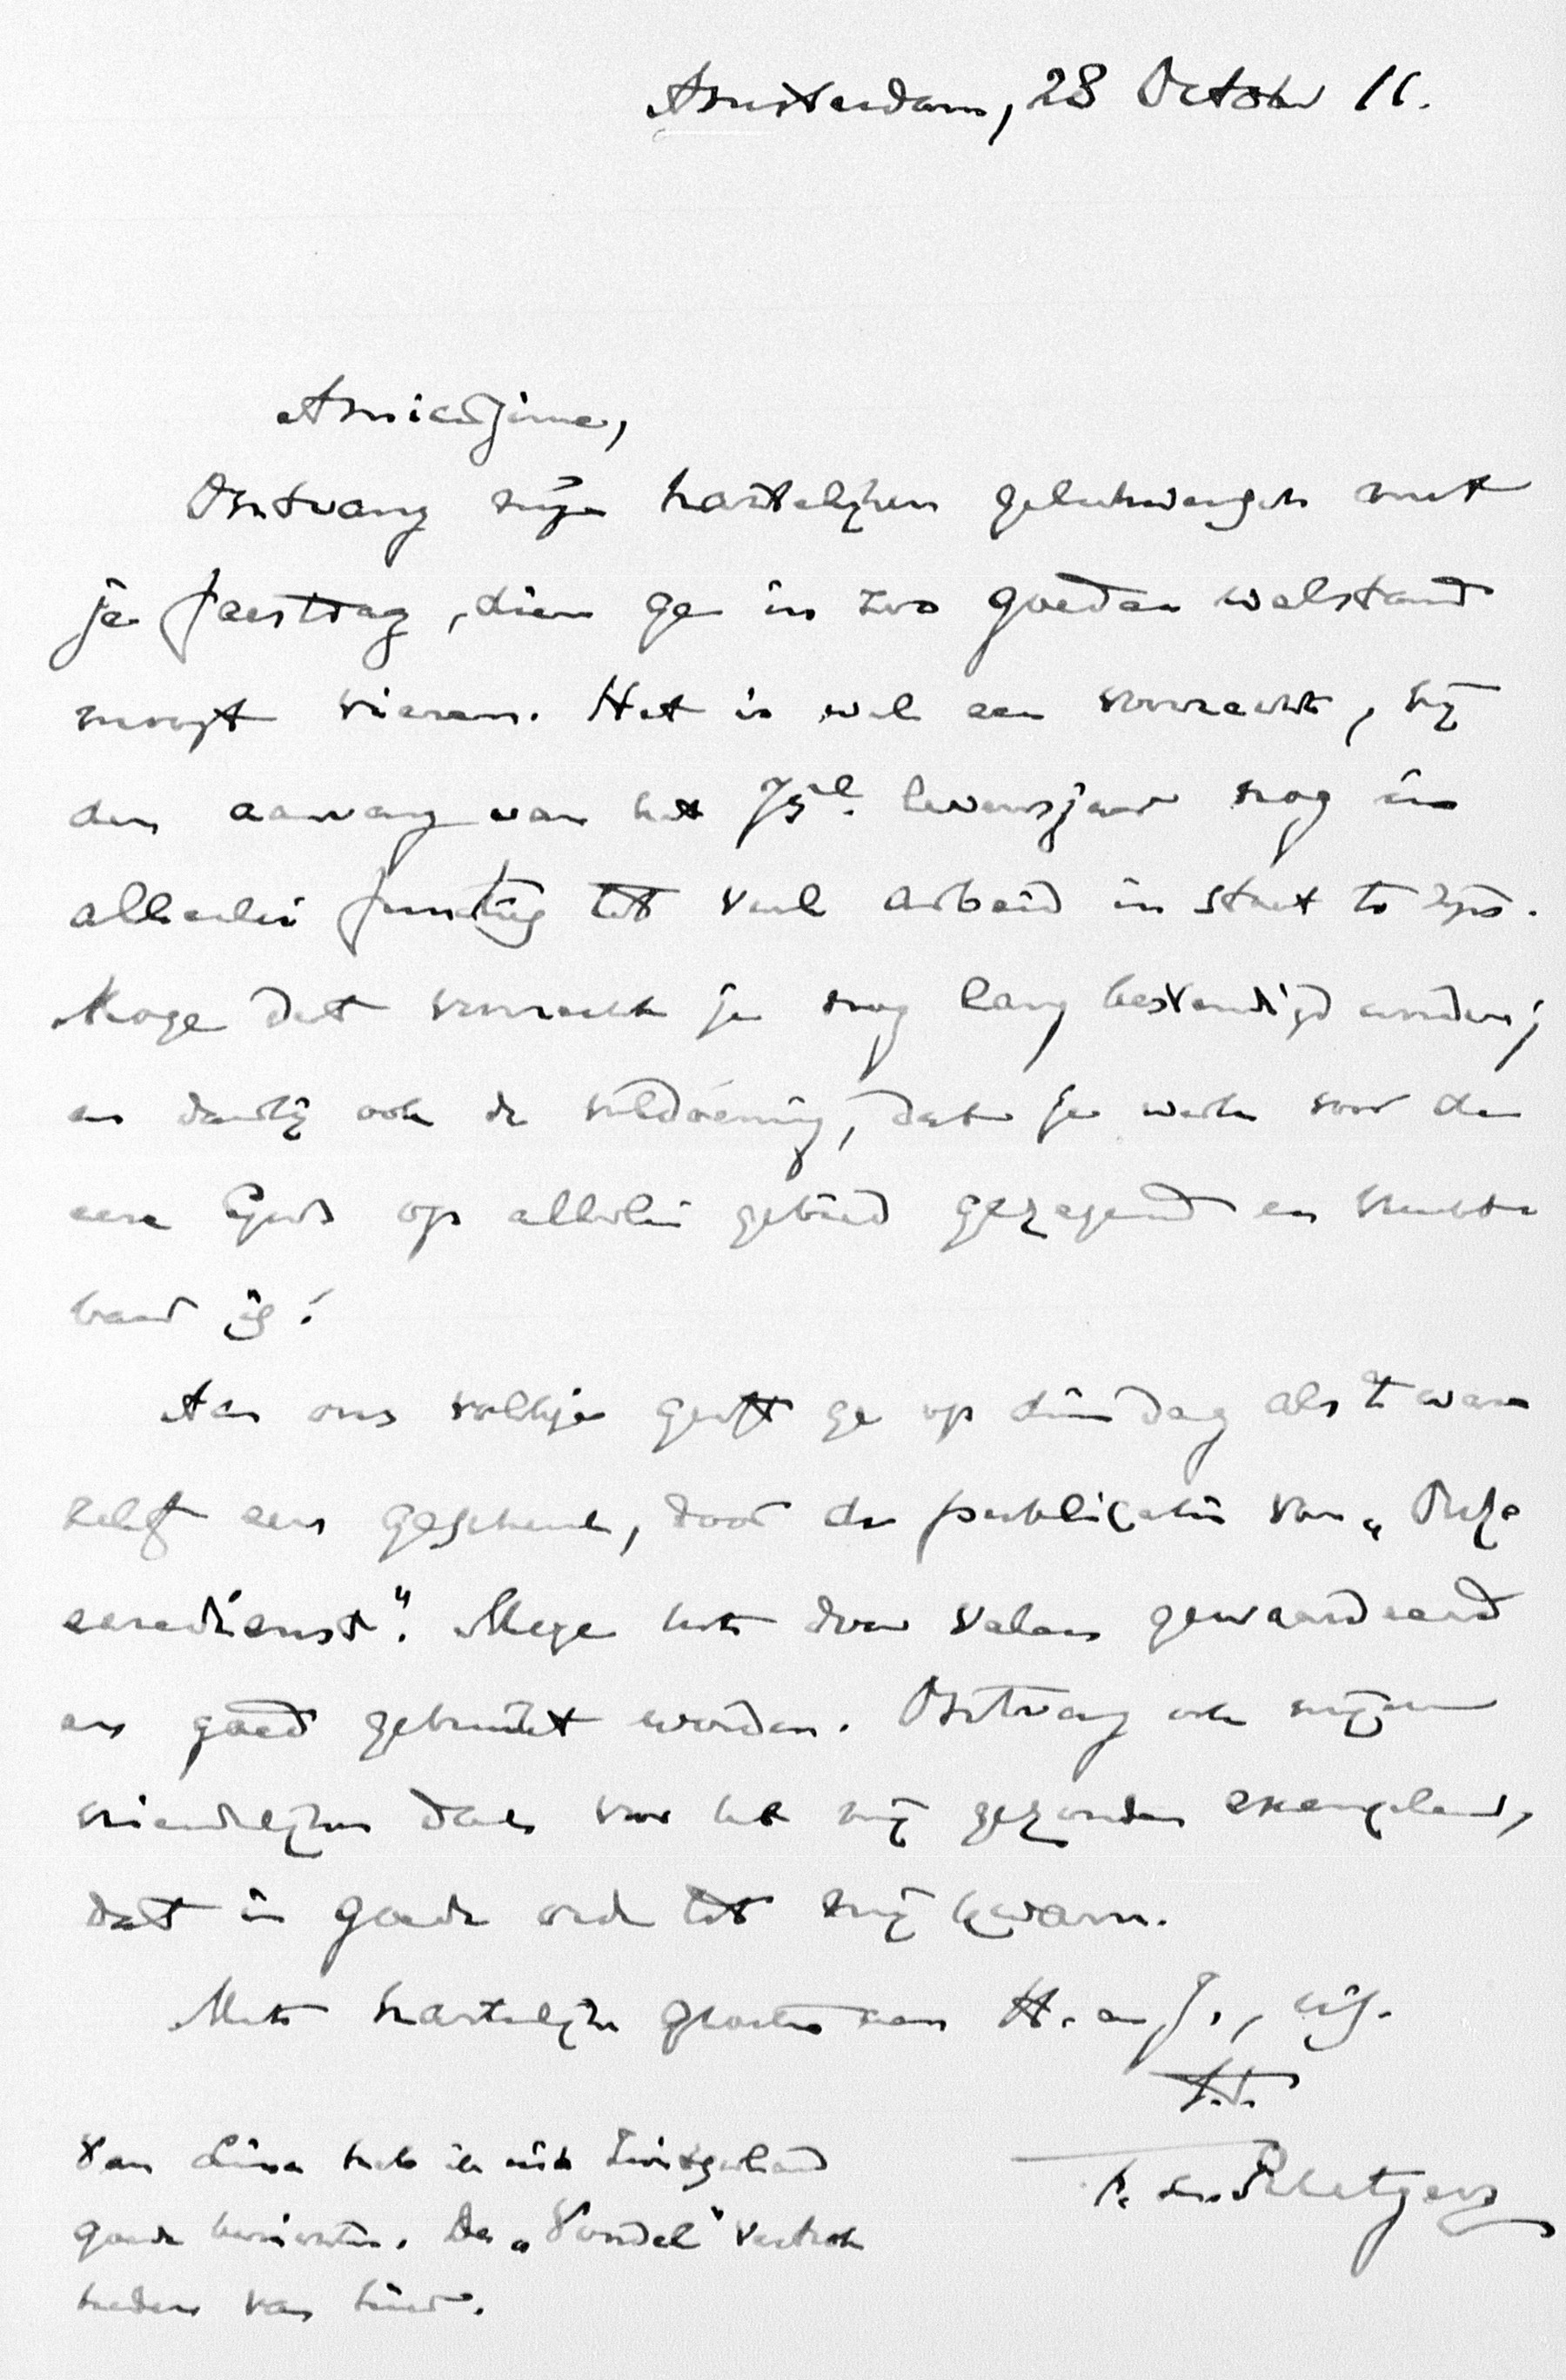 Amsterdam, 28 October 11.
Amicissime,
Ontvang mijn hartelijken gelukwensch met
je feestdag, dien ge in zoo goeden welstand
moogt vieren. Het is wel een voorrecht, bij
den aanvang van het 75e. levensjaar nog in
allerlei functie tot veel arbeid in staat te zijn.
Moge dat voorrecht je nog lang bestendigd worden;
en daarbij ook de voldoening, dat je werk voor de
eere Gods op allerlei gebied gezegend en vrucht-
baar is!
Aan ons volkje geeft ge op dien dag als 't ware
zelf een geschenk, door de publicatie van „Onze
eeredienst". Moge het door velen gewaardeerd
en goed gebruikt worden. Ontvang ook mijnen
vriendelijken dank voor het mij gezonden exemplaar,
dat in goede orde tot mij kwam.
Met hartelijke groeten aan H. en J.,
t.t.
F. L. Rutgers
Van Lina heb ik uit Zwitserland
goede berichten. De „Vondel" vertrok
heden van hier.